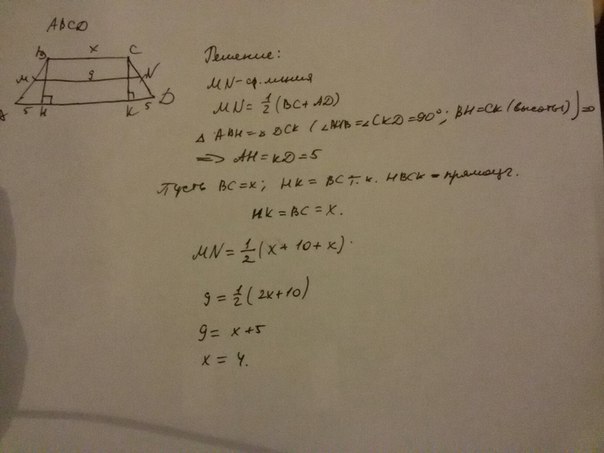 ABCD
B x C
M 9 N
A 5 H K 5 D
Решение:
MN-ср. линия
MN=1/2(BC+AD)
△ ABH=△ DCK (∠AHB=∠CKD=90°; BH=CK (высоты)) ⇒
⇒ AH=KD=5
Пусть BC=x; HK=BC т.к. HBCK - прямоуг.
HK=BC=X.
MN=1/2(x+10+x).
9=1/2(2x+10)
9= x+5
x=4.